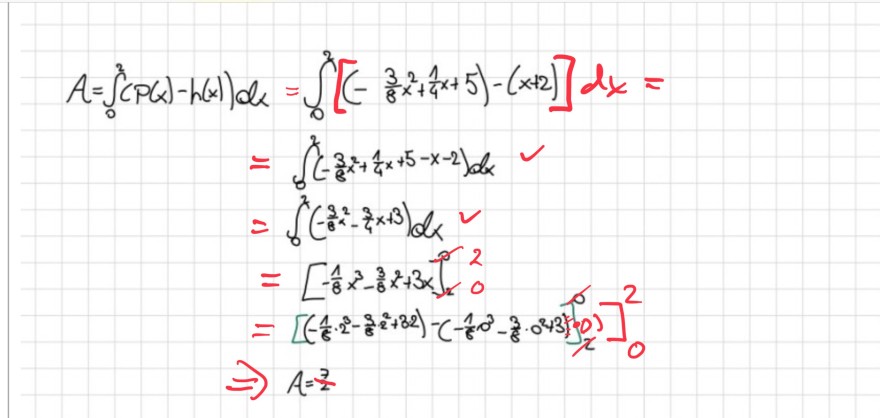 A=∫₀²(p(x)-h(x))dx = ∫₀²[(-3/8x²+1/4x+5)-(x+2)]dx =
= ∫₀²(-3/8x²+1/4x+5-x-2)dx ✓
= ∫₀²(-3/8x²-3/4x+3)dx ✓
= [-1/8x³-3/8x²+3x]₂⁰ 2 0
= [(-1/8·2³-3/8·2²+3·2)-(-1/8·0³-3/8·0²+3·0)]₂⁰]₀²
⇒ A=7/2